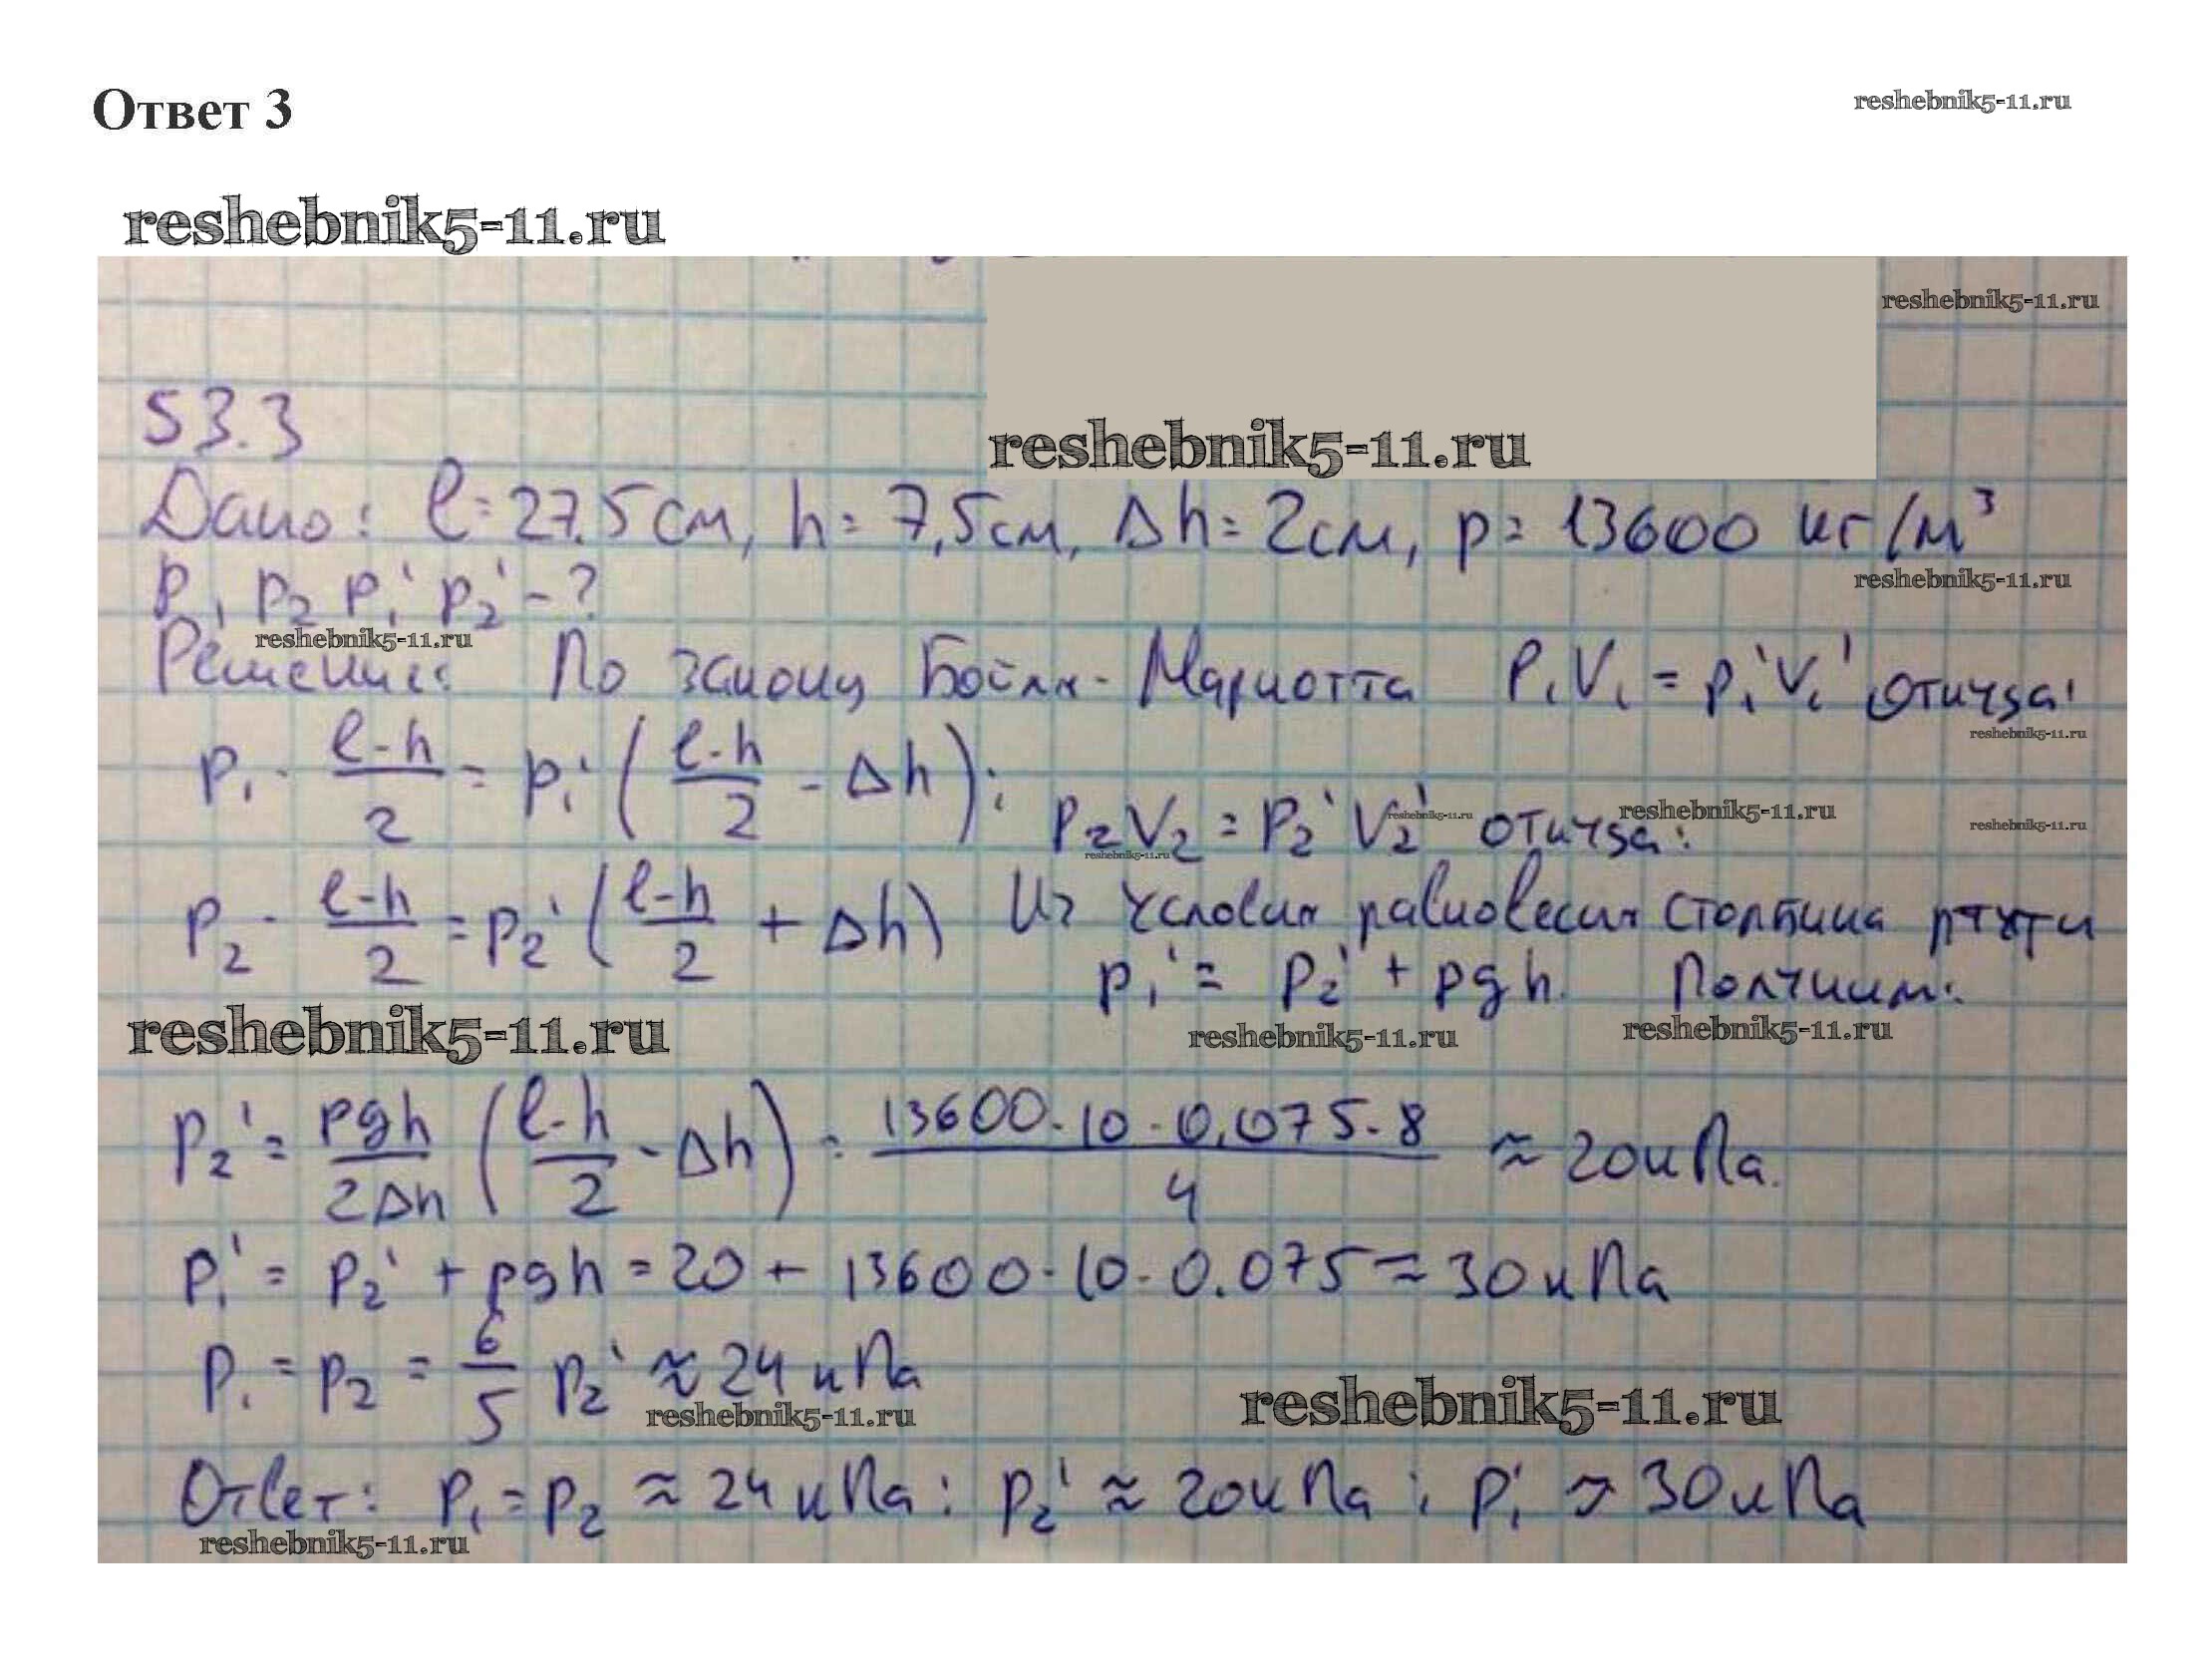 Ответ 3
reshebnik5-11.ru
reshebnik5-11.ru
reshebnik5-11.ru
53.3
reshebnik5-11.ru
Дано: l = 27.5 см, h = 7,5 см, Δh = 2 см, ρ = 13600 кг/м³
reshebnik5-11.ru
p₁ p₂ p₁' p₂' - ?
reshebnik5-11.ru
Решение: По закону Бойля-Мариотта P₁V₁ = p₁'V₁' откуда:
reshebnik5-11.ru
p₁ · (l-h)/2 = p₁' ((l-h)/2 - Δh);
reshebnik5-11.ru
reshebnik5-11.ru
reshebnik5-11.ru
P₂V₂ = P₂'V₂' откуда:
reshebnik5-11.ru
p₂ · (l-h)/2 = p₂' ((l-h)/2 + Δh) Из условия равновесия столбика ртути
p₁' = p₂' + ρgh. Получим:
reshebnik5-11.ru
reshebnik5-11.ru
reshebnik5-11.ru
p₂' = ρgh/2Δh ((l-h)/2 - Δh) = 13600·10·0,075·8/4 ≈ 20 кПа.
p₁' = p₂' + ρgh = 20 + 13600·10·0.075 ≈ 30 кПа
p₁ = p₂ = 6/5 p₂' ≈ 24 кПа
reshebnik5-11.ru
reshebnik5-11.ru
Ответ: p₁ = p₂ ≈ 24 кПа; p₂' ≈ 20 кПа; p₁' ≈ 30 кПа
reshebnik5-11.ru